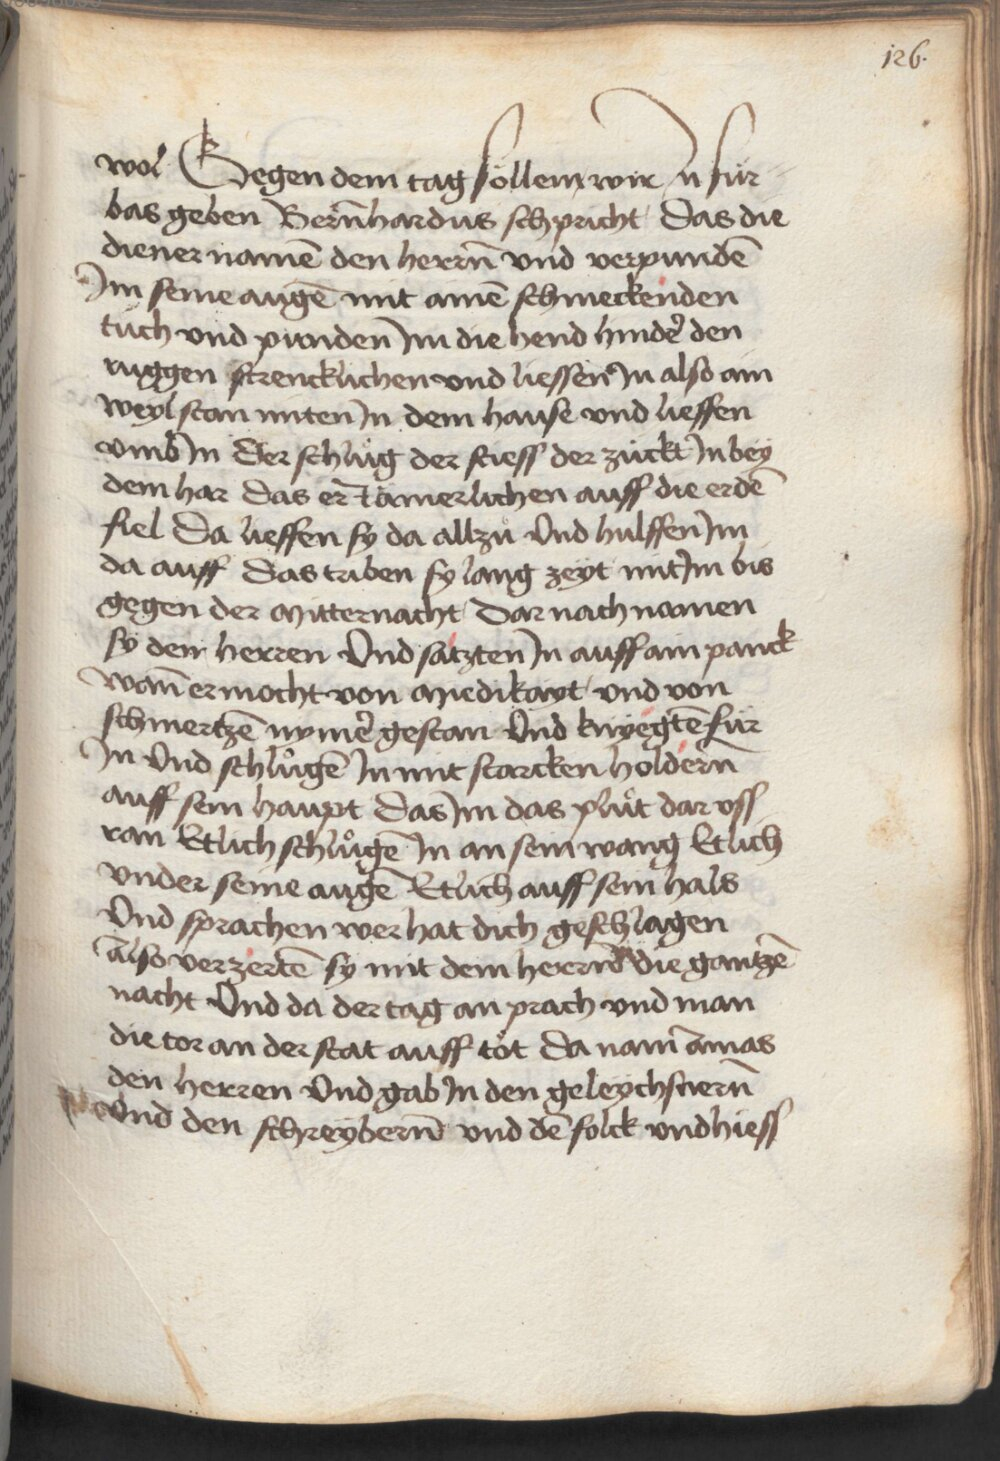 126.
wol Gegen dem tag söllem wir n̄ für
bas geben Bern̄hardus schpricht Das die
diener namē den herrn̄ vnd verpundē
Jm seine augē mit ainē schmeckenden
tuch vnd punden Jm die hend hinder̄ den
ruggen strencklichen vnd liessen Jn also ain
weyl stan miten Jn dem hause vnd lieffen
vmb Jn Der schlůg der stiess der zuckt Jn bey
dem har Das er Jamerlichen auff die erdē
fiel Da lieffen sy da allzů Vnd hulffen Jm
da auff Das triben sy lang zeyt mit Jm bis
gegen der Mitternacht Dar nach namen
sy den herren Vnd satzten Jn auff ain panck
wan̄ er mocht von Miedikayt vnd von
schmertzē nymer̄ gestan Vnd knyegtē für
Jn Vnd schlůgē Jn mit starcken holdern̄
auff sein haupt Das Jm das plůt dar vss
ran Etlich schlůgē Jn an sein wang Etlich
vnder seine augē Etlich auff sein hals
Vnd sprachen wer hat dich geschlagen
Also verzertē sy mit dem herrn̄ die gantzē
nacht Vnd da der tag an prach vnd man
die tor an der stat auff tǒt Da nam Annas
den herren Vnd gab Jn den geleychsnern̄
Vnd den schreybern̄ vnd dē folck vnd hiess